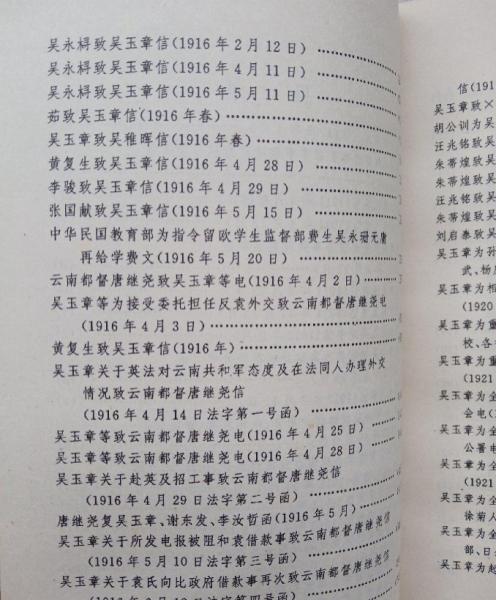 吴永桪致吴玉章信(1916年2月12日)
吴永桪致吴玉章信(1916年4月11日)
吴永桪致吴玉章信(1916年5月11日)
茹致吴玉章信(1916年春)
吴玉章致吴稚晖信(1916年春)
黄复生致吴玉章信(1916年4月28日)
李骏致吴玉章信(1916年4月29日)
张国献致吴玉章信(1916年5月15日)
中华民国教育部为指令留欧学生监督部费生吴永珊无庸
再给学费文(1916年5月20日)
云南都督唐继尧致吴玉章等电(1916年4月2日)
吴玉章等为接受委托担任反袁外交致云南都督唐继尧电
(1916年4月3日)
黄复生致吴玉章信(1916年)
吴玉章关于英法对云南共和军态度及在法同人办理外交
情况致云南都督唐继尧信
(1916年4月14日法字第一号函)
吴玉章等致云南都督唐继尧电(1916年4月25日)
吴玉章等致云南都督唐继尧电(1916年4月28日)
吴玉章关于赴英及招工事致云南都督唐继尧信
(1916年4月29日法字第二号函)
唐继尧复吴玉章、谢东发、李汝哲函(1916年5月)
吴玉章关于所发电报被阻和袁借款事致云南都督唐继尧信
(1916年5月10日法字第三号函)
吴玉章关于袁氏向比政府借款事再次致云南都督唐继尧信
信(191
吴玉章致×
胡公训为吴
汪兆铭致吴
朱蒂煌致吴
朱蒂煌致吴
汪兆铭致吴
朱蒂煌致吴
刘启泰致吴
吴玉章为孙
武、杨庶
吴玉章为相
(1920
吴玉章为重
校、各
吴玉章为重
(1921
吴玉章为全
会电(1
吴玉章为全
公署电
吴玉章为全
(1921
吴玉章为全
徐菊人
吴玉章为全
部、日
吴玉章为赴